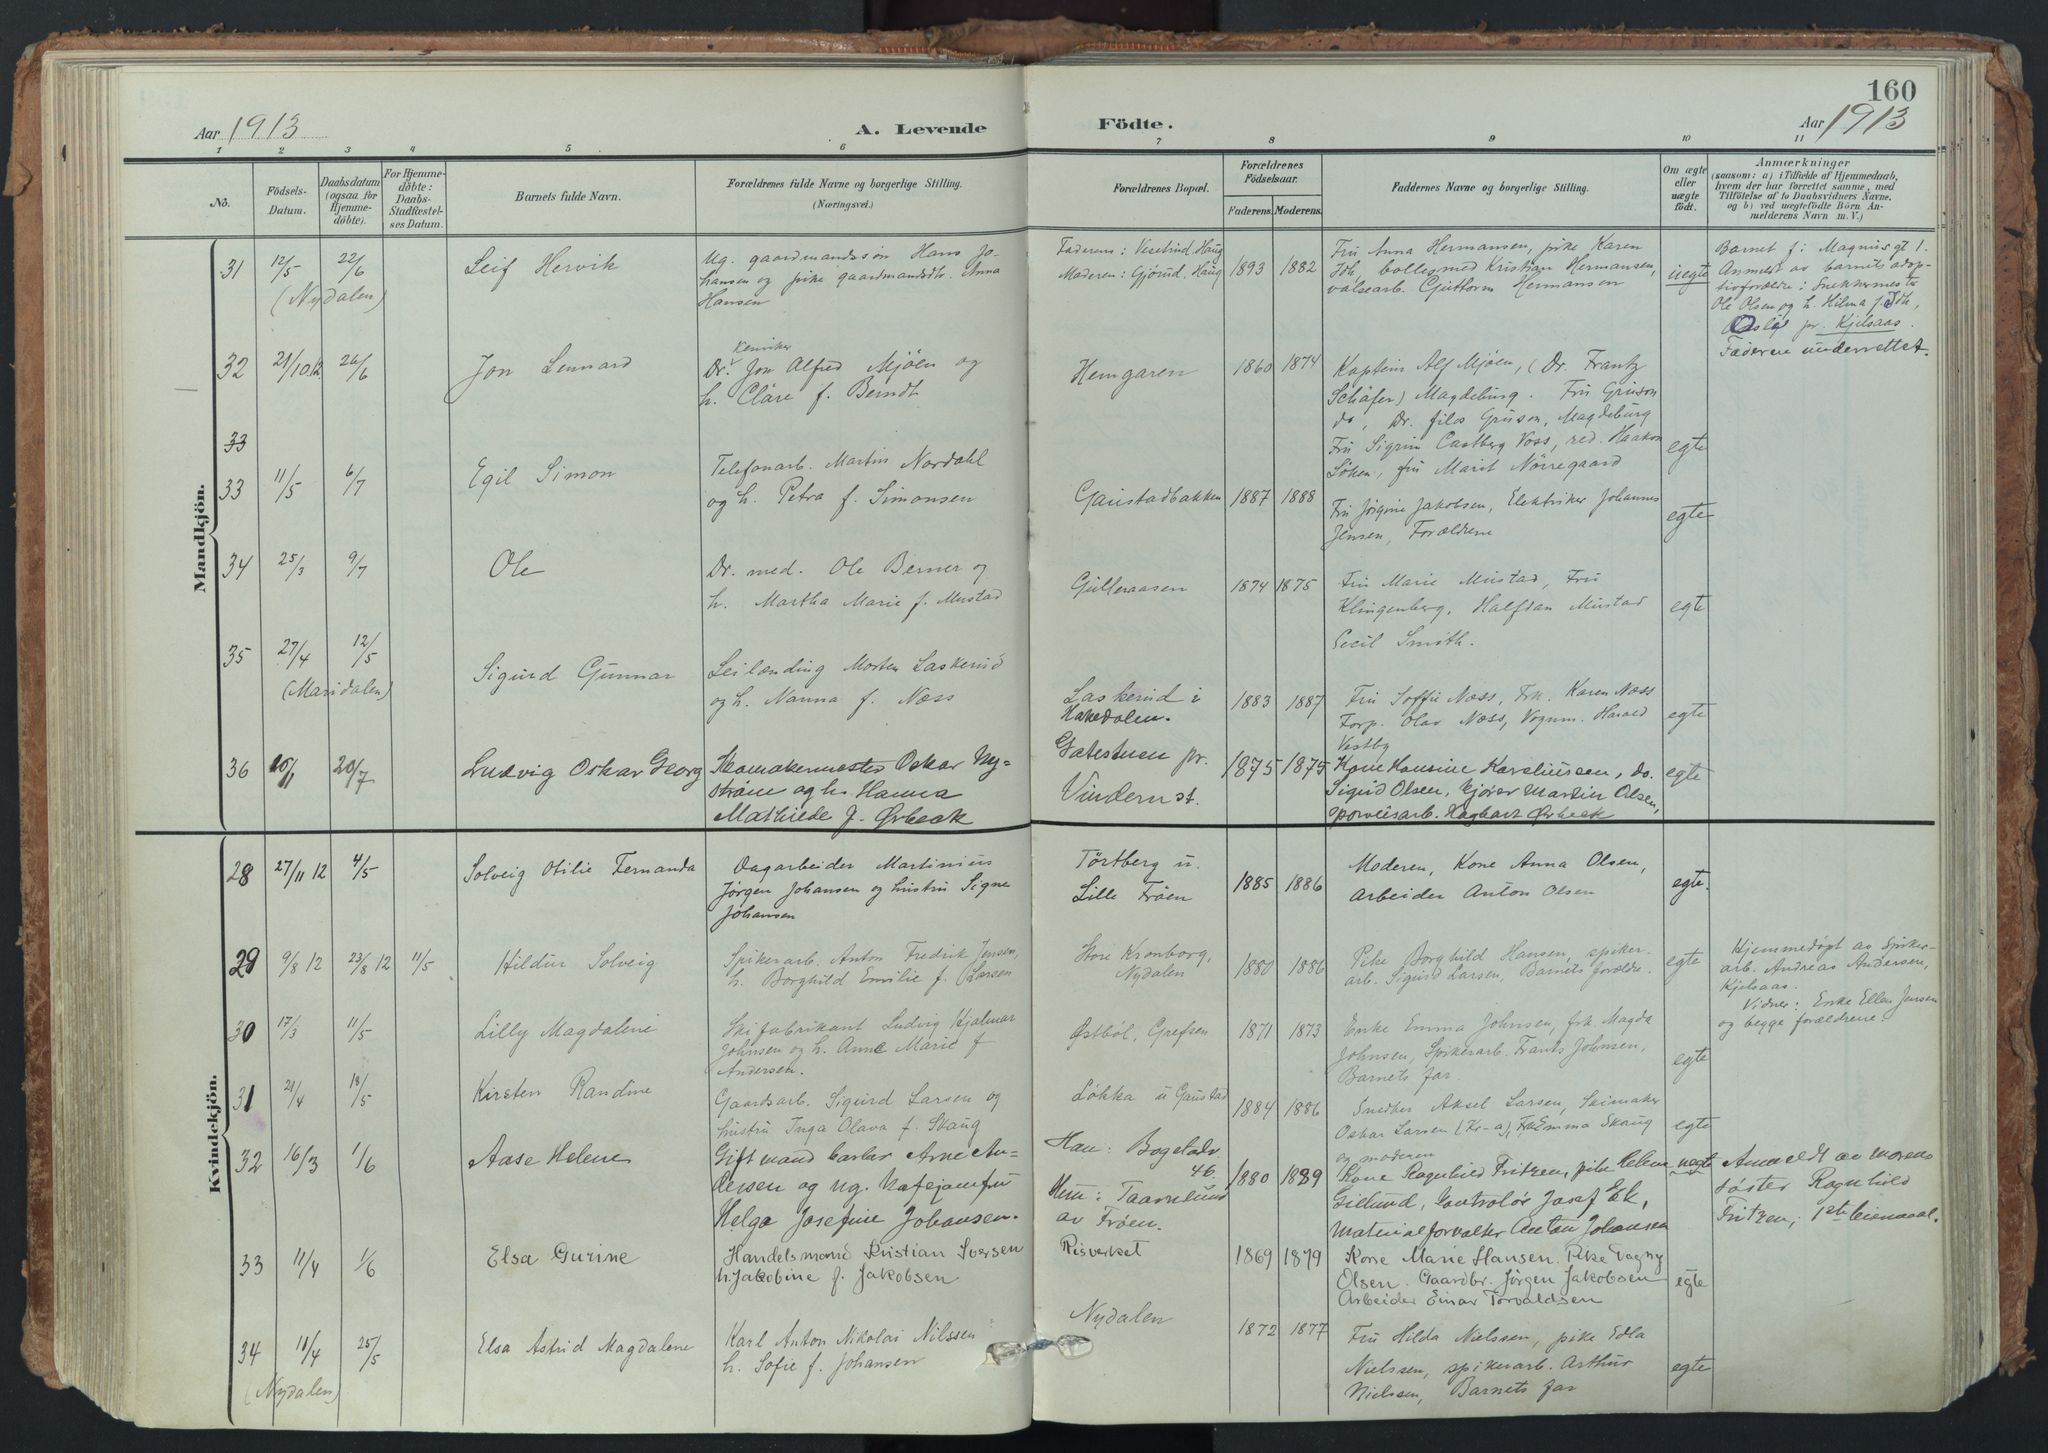 160
Aar 1913
A. Levende
Födte.
Aar 1913
1 2 3 4 5 6 7 8 9 10 11
No.
Födsels-
Datum.
Daabsdatum
(ogsaa for
Hjemme-
döbte).
For Hjemme-
döbte:
Daabs-
Stadfæstel-
ses Datum.
Barnets fulde Navn.
Forældrenes fulde Navne og borgerlige Stilling.
(Næringsvei.)
Forældrenes Bopæl.
Forældrenes
Födselsaar.
Faderens. Moderens.
Faddernes Navne og borgerlige Stilling.
Om ægte
eller
uægte
födt.
Anmærkninger
(saasom: a) i Tilfælde af Hjemmedaab,
hvem der har forrettet samme, med
Tilföielse af to Daabsvidners Navne,
og b) ved uægtefödte Börn An-
melderens Navn m. V.)
Mandkjön.
31 12/5 22/6
(Nydalen)
Leif Hervik
Ug. gaardmandssön Hans Jo-
hansen og pike gaardmandsdtr. Anna
Hansen
Faderens: Haug
Moderen: Gjörud, Haug
1893 1882
Fru Anna Hermansen, pike Karen
Hermansen,
valsearb. Guttorm Hermansen
uegte
Barnet f: Magnus gt 1.
Anmeldt av barnets adop-
tivforældre: Snekkermester
Ole Olsen og h. Hilma f.
pr. Kjelsaas.
Faderen underrettet.
32 21/10 12 26/6
Jon Lennard
Kemiker
Dr. Jon Alfred Mjöen og
h. Cläre f. Berndt
Hemgaren
1860 1874
Kaptein Alf Mjöen, (Dr. Frantz
Schäfer) Magdeburg. Fru Gruson
do, Dr. filos Gruson, Magdeburg
Fru Sigrun Castberg Voss, red. Haakon
Löken, fru Marit Nörregaard
egte
33
33 11/5 6/7
Egil Simon
Telefonarb. Martin Nordahl
og h. Petra f. Simonsen
Gaustadbakken
1887 1888
Fru Jørgine Jakobsen, Elektriker Johannes
Jensen, Forældrene
egte
34 25/3 9/7
Ole
Dr. med. Ole Berner og
h. Martha Marie f. Mustad
Gulleraasen
1874 1875
Fru Marie Mustad, Fru
Klingenberg, Halfdan Mustad
Cecil Smith.
egte
35 27/4 12/5
(Maridalen)
Sigurd Gunnar
Leilænding Morten Laskerud
og h. Nanna f. Næss
Laskerud i
Hakedalen.
1883 1887
Fru Soffie Næss, Frk. Karen Næss
Forp. Olav Næss, Vognm. Harald
Vestby
egte
36 20/7
Ludvig Oskar Georg
Skomakermester Oskar Ny-
strøm og h. Hanna
Mathilde f. Ørbeck
Gatestuen pr.
Vindern st.
1875 1875
Kone Hansine Karoliussen, do.
Sigrid Olsen, Kjører Martin Olsen,
sporveisarb. Hagbart Ørbeck
egte
Kvindekjön.
28 27/11 12 4/5
Solveig Otilie Fernanda
Dagarbeider Martinius
Jørgen Johansen og hustru Signe
Johansen
Törtberg u.
Lille Fröen
1885 1886
Moderen, Kone Anna Olsen,
Arbeider Anton Olsen
egte.
29 9/8 12 23/8 12 11/5
Hildur Solveig
Spikerarb. Anton Fredrik Jensen,
h. Borghild Emilie f. Larsen
Store Kronborg,
Nydalen
1880 1886
Pike Borghild Hansen, spiker-
arb. Sigurd Larsen, Barnets forældre.
egte
Hjemmedøpt av Spiker-
arb. Andreas Andersen,
Kjelsaas.
Vidner: Enke Ellen Jensen
og begge forældrene.
30 17/3 11/5
Lilly Magdalene
Skifabrikant Ludvig Hjalmar
Johnsen og h. Anne Marie f
Andersen.
Østböl, Grefsen
1871 1873
Enke Emma Johnsen, frk. Magda
Johnsen, Spikerarb. Frants Johnsen,
Barnets far.
egte
31 21/4 18/5
Kirsten Randine
Gaardsarb. Sigurd Larsen og
hustru Inga Olava f. Skaug
Løkka u Gaustad
1884 1886
Snedker Aksel Larsen, Skimaker
Oskar Larsen (Kr-a), Frk Emma Skaug
og moderen
egte
32 16/3 1/6
Aase Helene
Gift mand Arne An-
dersen og ug. Kafejomfru
Helga Josefine Johansen.
Han: Bogstadv.
46.
Hun: Taarnlund
av Frøen.
1880 1889
Kone Ragnhild Fritzen, pike Helene
Gidlund, Kontrolør Josef Ek,
Materialforvalter Anton Johansen
uegte
Anmeldt av morens
søster Ragnhild
Fritzen,
33 11/4 1/6
Elsa Gurine
Handelsmand Kristian Iversen
h. Jakobine f. Jakobsen
Risverket
1869 1879
Kone Marie Hansen. Pike Dagny
Olsen. Gaardbr. Jørgen Jakobsen
Arbeider Einar Torvaldsen
egte
34 11/4 25/5
(Nydalen)
Elsa Astrid Magdalene
Karl Anton Nikolai Nilssen
h. Sofie f. Johansen
Nydalen
1872 1877
Fru Hilda Nielssen, pike Edla
Nielssen, spikerarb. Arthur
Nielssen, Barnets far
egte